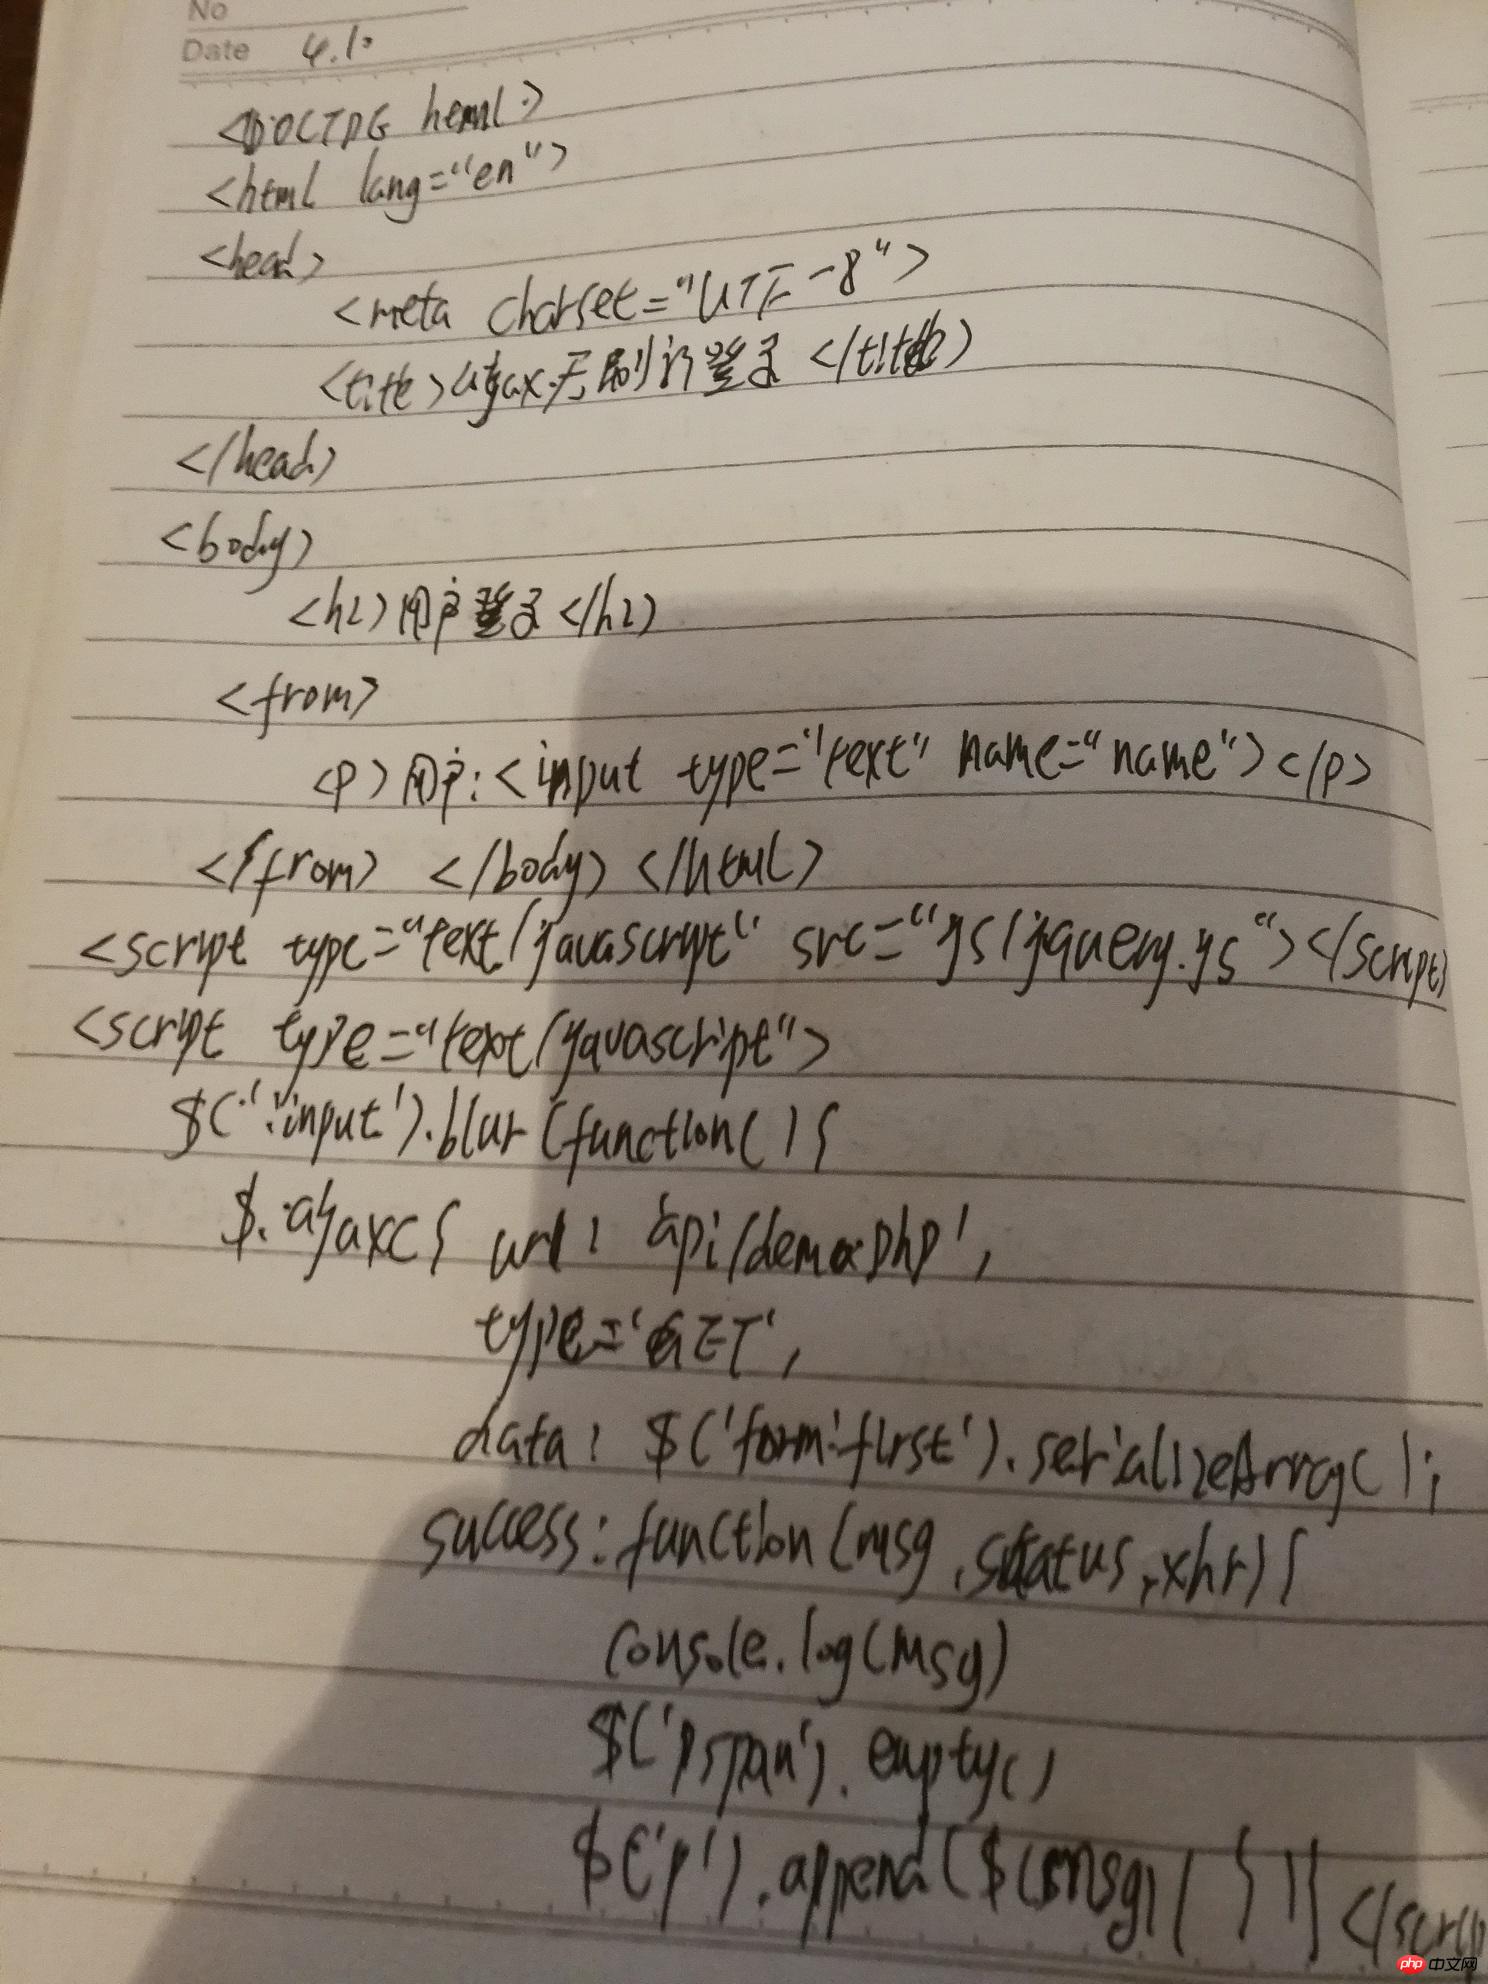 No
Date 4.1
<html lang="en">
<head>
<meta charset="UTF-8">
<title>ajax无刷新登录</title>
</head>
<body>
<h2>用户登录</h2>
<from>
<p>用户:<input type="text" name="name"></p>
</from> </body> </html>
<script type="text/javascript" src="js/jquery.js"></script>
<script type="text/javascript">
$(':input').blur(function(){
$.ajax({ url: 'api/demo.php',
type='GET',
data: $('form:first').serializeArray();
success:function(msg,status,xhr){
console.log(msg)
$('p span').empty()
$('p').append($(msg)
php 中文网